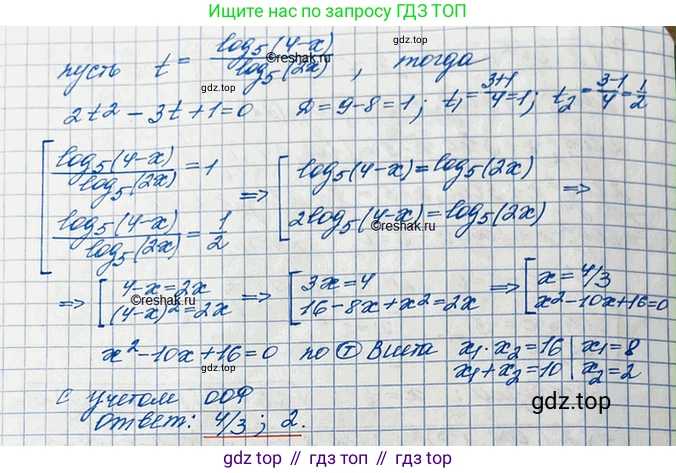 Ищите нас по запросу ГДЗ ТОП
gdz.top
пусть t = log₅(4-x)/log₅(2x), тогда
©reshak.ru
2t2 - 3t + 1 = 0 D = 9 - 8 = 1; t₁ = (3+1)/4 = 1; t₂ = (3-1)/4 = 1/2
[ log₅(4-x)/log₅(2x) = 1 => [ log₅(4-x) = log₅(2x) =>
log₅(4-x)/log₅(2x) = 1/2 2log₅(4-x) = log₅(2x)
©reshak.ru
=> [ 4-x = 2x => [ 3x = 4 => [ x = 4/3
©reshak.ru
(4-x)² = 2x 16 - 8x + x² = 2x x² - 10x + 16 = 0
x² - 10x + 16 = 0 по Ⓣ Виета x₁·x₂ = 16 | x₁ = 8
x₁ + x₂ = 10 | x₂ = 2
с учетом ООФ
ответ: 4/3; 2.
gdz.top
gdz.top // гдз.топ // гдз.top